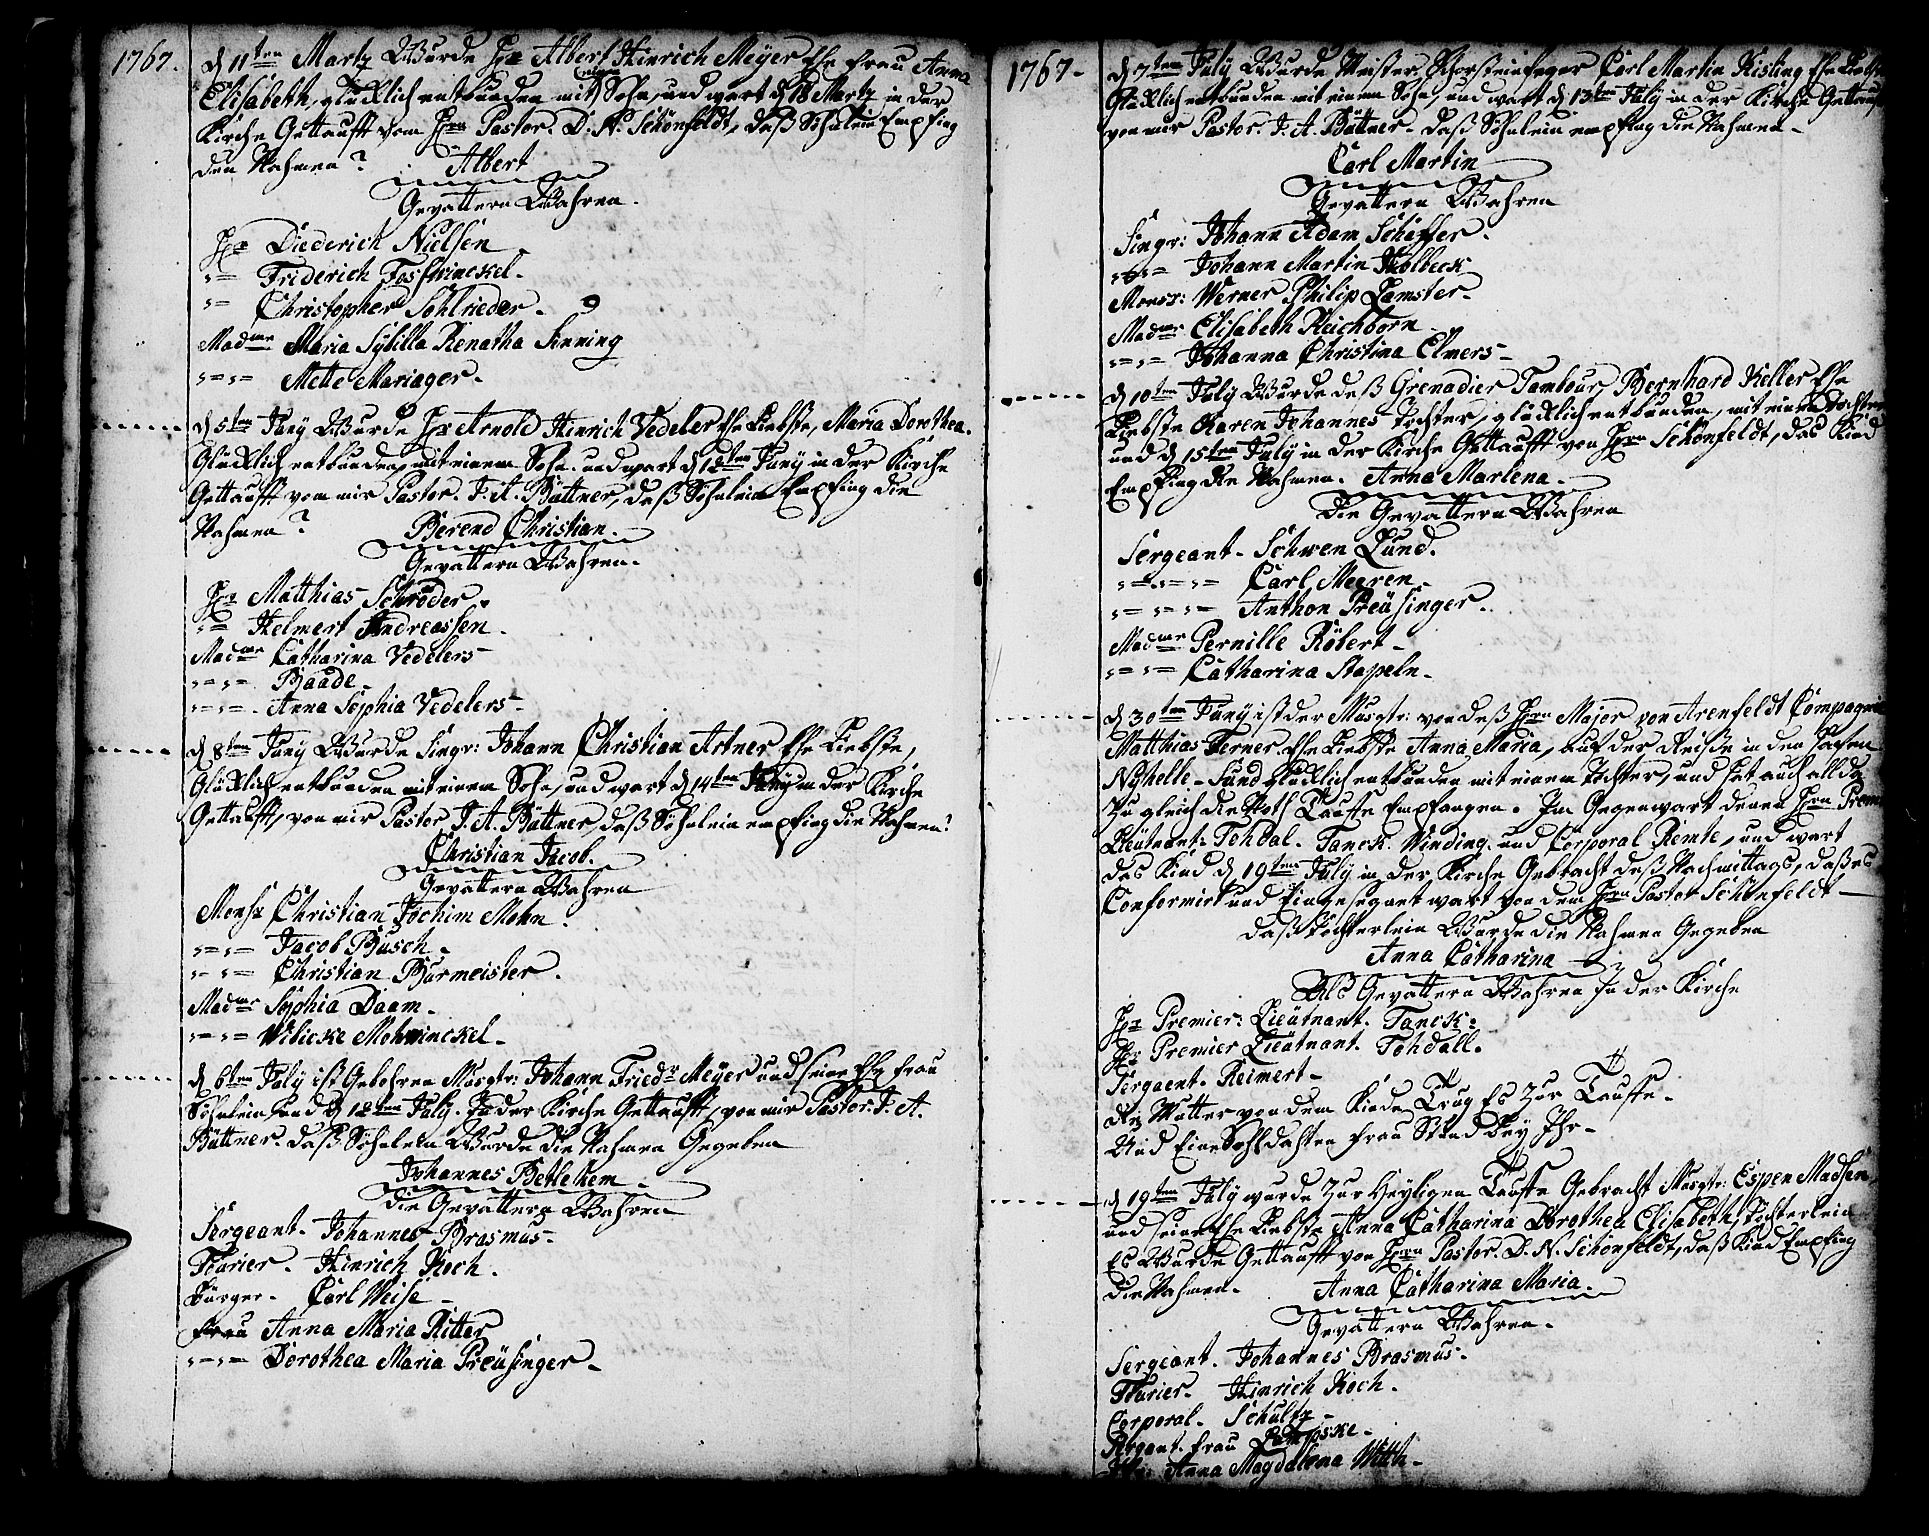 1767.
d 11ten Martz Wurde Hr Albert Hinrich Meyer Ehe Frau Anna
Elisabeth, glücklich entbunden mit einem Sohn, und wart d 18 Martz in der
Kirche Gettaufft vom Hrn Pastor. D. N. Schönfeldt, daß Söhnlein Empfing
den Nahmen? Albert
Gevattern Wahren.
Hr Diederich Nielsen
"=" Friderich Fosswinckel.
"= Christopher Sohlrieder.
Madme Maria Sybilla Renatha Sinning
"=" Mette Mariager.
d 5ten Juny Wurde Hr Arnold Hinrich Vedeler Ehe Liebste, Maria Dorothea.
Glücklich entbunden, mit einem Sohn. und wart d 12ten Juny in der Kirche
Gettaufft von mir Pastor. J. A. Büttner, daß Söhnlein Empfing die
Nahmen? Berend Christian.
Gevattern Wahren.
Hr Matthias Schröder.
"= Helmert Andreassen.
Madme Catharina Vedelers
"=" Baade.
"=" Anna Sophia Vedelers
d 8ten Juny Wurde Singr: Johann Christian Artner Ehe Liebste,
Glücklich entbunden mit einem Sohn, und wart d 14ten Juny in der Kirche
Gettaufft, von mir Pastor J. A. Büttner, daß Söhnlein empfing die Nahmen?
Christian Jacob.
Gevattern Wahren
Monsr Christian Jochim Mohn.
"=" Jacob Busch.
"=" Christian Burmeister.
Madme Sophia Daam.
"=" Wibicke Mohwinckel.
d 6ten July ist Gebohren Musqtr: Johann Friedr Meyer und seine Ehe Frau
Söhnlein, und d 12ten July. In der Kirche Gettaufft, von mir Pastor. J. A.
Büttner. daß Söhnlein Wurde die Nahmen Gegeben
Johannes Betlehem.
die Gevattern Wahren
Sergeant. Johannes Brasmus.
Furier. Hinrich Koch.
Bürger. Carl Weise
Frau Anna Maria Ritter
"=" Dorothea Maria Preüsinger
1767.
d 7ten July Wurde Meister Schorsteinfeger Carl Martin Kisling Ehe Liebste
Glücklich entbunden mit einem Sohn, und wart d 13ten July in der Kirche Gettaufft
von mir Pastor. J. A. Büttner. daß Söhnlein empfing die Nahmen.
Carl Martin
Gevattern Wahren
Singr: Johann Adam Scheffer.
"=" Johann Martin Holbeck
Monsr: Werner Philip Lamster.
Madme Elisabeth Reichborn
"=" Johanna Christina Elmers
d 10ten July Wurde deß Grenadier Tambour, Bernhard Keller Ehe
Liebste Karen Johannes Tochter, glücklich entbunden, mit einem Tochter
und d 15ten July in der Kirche Gettaufft von Hrn Schönfeldt, das Kind
Empfing die Nahmen. Anna Marlena.
Die Gevattern Wahren
Sergeant. Schwen Lund.
"="=" Carl Meeren
"="=" Anthon Preüsinger.
Madme Pernille Röbert
"=" Catharina Stapeln.
d 30ten Juny ist der Musqtr: von deß Hrn Major von Arenfeldt Compagnie
Matthias Ferner Ehe Liebste Anna Maria, auf der Reisße in den Hafen
Nyhelle-Sund glücklich entbunden mit einem Tochter, und hat auch allda
Zu gleich die Noth Tauffe Empfangen. Im Gegenwart denen Hrn Prem
Lieutnant: Tohdal. Tanck. Winding. und Corporal Remte, und wart
das Kind d 19ten July in der Kirche Gebracht deß Nachmittags, daß es
Confermirt und Eingesegnet wart von dem Hrn Pastor Schönfeldt
daß Töchterlein Wurde die Nahmen Gegeben
Anna Catharina
Als Gevattern Wahren In der Kirche
Hr Premier: Lieutnant. Tanck.
Hr Premier Lieutnant. Tohdall.
Sergaent. Reimert
die Mutter von dem Kinde Trug Es zur Tauffe.
Und Eine Sohldahten Frau Stund bey Ihr
d 19ten July wurde zur Heyligen Tauffe Gebracht Musqtr: Espen Madsen
und seine Ehe Liebste Anna Catharina Dorothea Elisabeth, Töchterlein
Es Wurde Gettaufft von Hrn Pastor. D. N. Schönfeldt, daß Kind Empfing
die Nahmen. Anna Catharina Maria.
Gevattern Wahren.
Sergeant. Johannes Brasmus.
Furier. Hinrich Koch.
Corporal. Schultz
Sergant. Frau
Anna Magdalena With